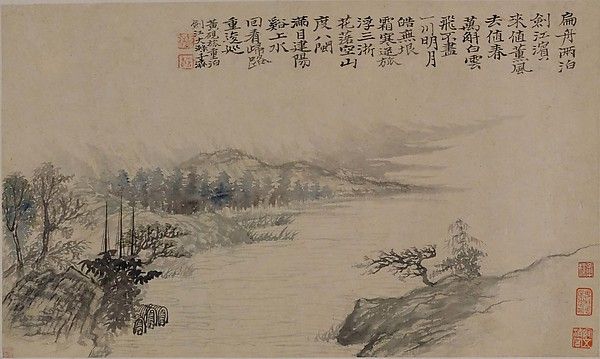 扁舟兩泊
劍江濱
來值薰風
去值春
萬斛白雲
飛不盡
一川明月
皓無垠
霜寒逆旅
浮三浙
花落空山
度八閩
滿目建陽
谿上水
回看歸路
重逡巡
黃硯旅重泊
劍江